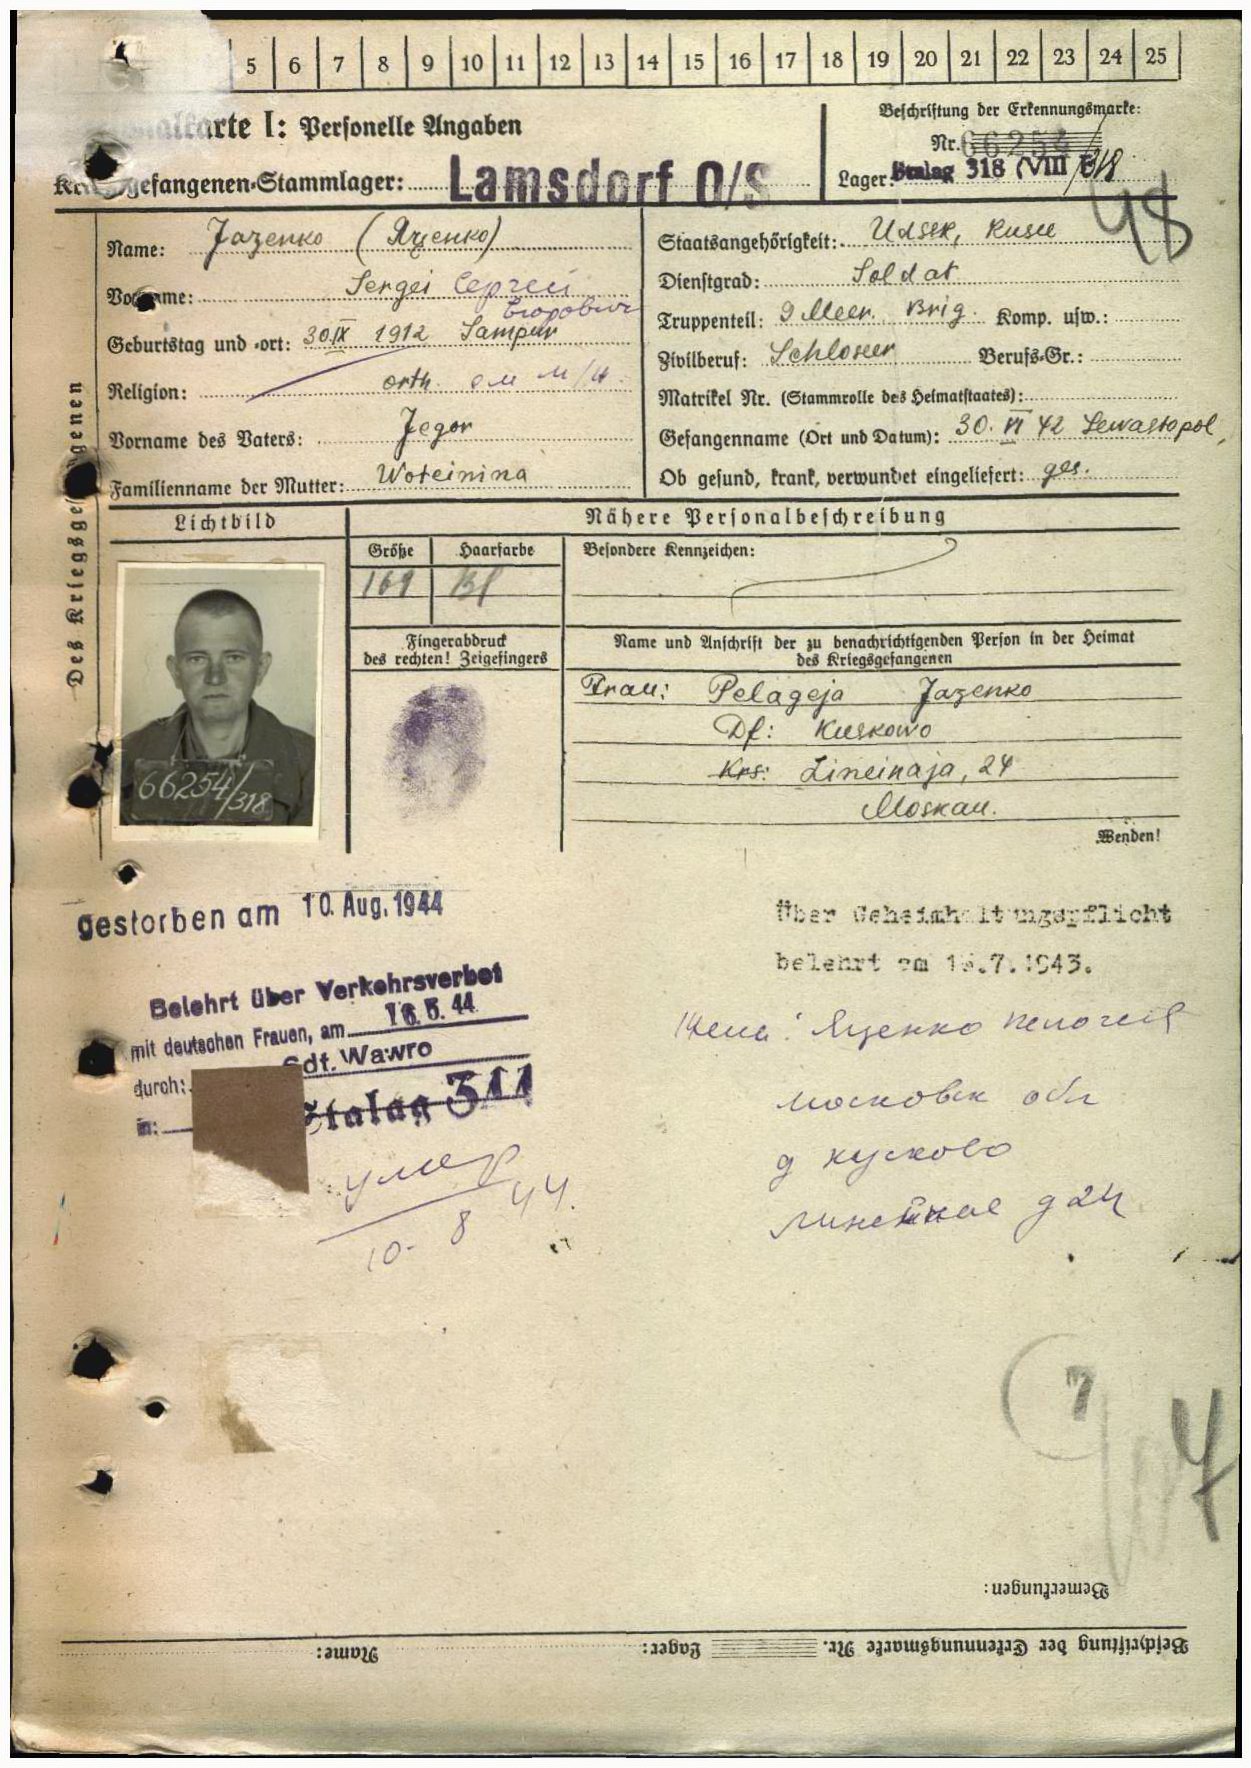 5 6 7 8 9 10 11 12 13 14 15 16 17 18 19 20 21 22 23 24 25
karte I: Personelle Angaben
Kriegsgefangenen-Stammlager: Lamsdorf O/S
Beschriftung der Erkennungsmarke:
Nr. 66254
Lager: Stalag 318 (VIII F) /318
48
Des Kriegsgefangenen
Name: Jazenko (Яценко)
Vorname: Sergei Сергей
Егорович
Geburtstag und -ort: 30.IX 1912 Sampur
Religion: orth.
Vorname des Vaters: Jegor
Familienname der Mutter: Woteinina
Staatsangehörigkeit: UdSSR, Russe
Dienstgrad: Soldat
Truppenteil: 9 Meer. Brig. Komp. usw.:
Zivilberuf: Schlosser Berufs-Gr.:
Matrikel Nr. (Stammrolle des Heimatstaates):
Gefangenname (Ort und Datum): 30. VI 42 Sewastopol,
Ob gesund, krank, verwundet eingeliefert: ges.
Lichtbild
Nähere Personalbeschreibung
Größe Haarfarbe Besondere Kennzeichen:
169 Bl
Fingerabdruck
des rechten! Zeigefingers
Name und Anschrift der zu benachrichtigenden Person in der Heimat
des Kriegsgefangenen
Frau: Pelageja Jazenko
Df: Kuskowo
Krs: Lineinaja, 24
Moskau.
Wenden!
66254/318
gestorben am 10. Aug. 1944
Belehrt über Verkehrsverbot
mit deutschen Frauen, am 16.5.44
durch: Gdt. Wawro
in: Stalag 344
умер
10- 8 44.
Über Geheimhaltungspflicht
belehrt am .7.1943.
Жена: Яценко Пелогея
московск обл
д кусково
линейная д 24
7
4
Bemerkungen:
Beschriftung der Erkennungsmarke Nr. Lager: Name: